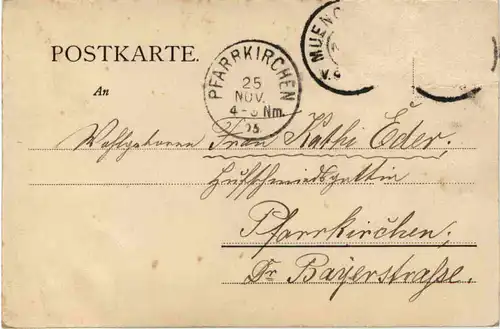 POSTKARTE.
MUENC
PFARRKIRCHEN
25
NOV.
4-5 Nm.
05.
An
Wohlgeboren Frau Kathi Eder,
Hufschmiedsgattin
Pfarrkirchen,
Dr. Bayerstraße.